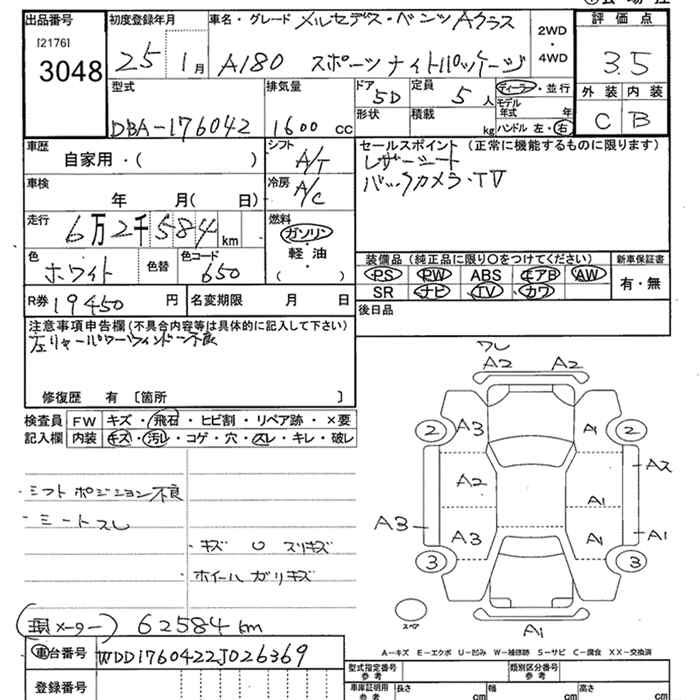 出品番号 初度登録年月 車名・グレード メルセデス・ベンツ Aクラス 2WD・4WD 評価点
[2176]
3048 25 1月 A180 スポーツ ナイトパッケージ 3.5
型式 排気量 ドア 5D 定員 5人 ディーラー・並行 外装 内装
形状 積載 kg モデル年式 年
DBA-176042 1600cc ハンドル 左・右 C B
車歴 シフト セールスポイント (正常に機能するものに限ります)
自家用・( ) A/T レザーシート
車検 冷房 バックカメラ・TV
年 月( 日) A/C
走行 燃料
6万2千584km ガソリン
色 色替 色コード 軽・油 装備品 (純正品に限り○をつけてください) 新車保証書
ホワイト 650 ( ) PS PW ABS エアB AW 有・無
R券 19450円 名変期限 月 日 SR ナビ TV カワ
後日品
注意事項申告欄(不具合内容等は具体的に記入して下さい)
左リヤーパワーウィンドー不良
修復歴 有 〔箇所 〕
検査員 FW キズ・飛石・ヒビ割・リペア跡・×要
記入欄 内装 キズ・汚レ・コゲ・穴・スレ・キレ・破レ
・シフトポジション不良
・シートスレ
・キズ U スリキズ
・ホイールガリキズ
ワレ
A2 A2
2 A3 A1 2
A2 A2
A1
A3 A3 A1 A1
3 3
スペア A1
(現メーター) 62584km
A-キズ E-エクボ U-凹み W-補修跡 S-サビ C-腐食 XX-交換済
車台番号 WDD1760422J026369
型式指定番号 参考 類別区分番号 参考
登録番号 車庫証明用 参考 長さ cm 幅 cm 高さ cm